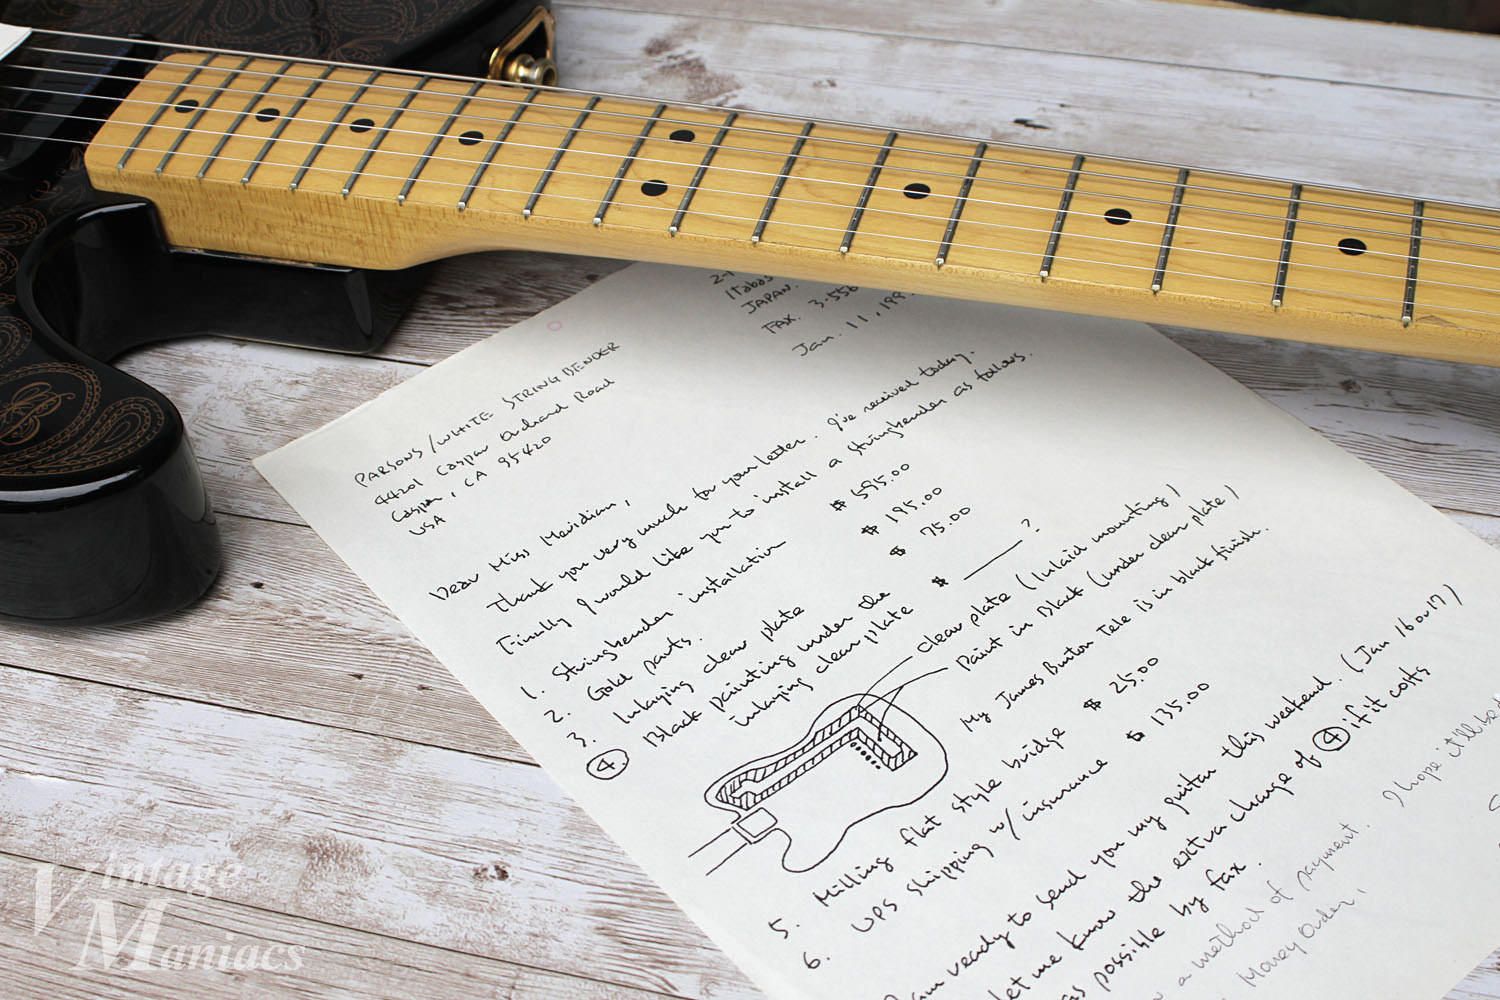 Itabas
JAPAN.
FAX. 3.556
Jan. 11, 199
PARSONS/WHITE STRING BENDER
44201 Caspar Orchard Road
Caspar, CA 95420
USA
Dear Miss Meridian,
Thank you very much for your letter. I've received today.
Finally I would like you to install a stringbender as follows.
1. Stringbender installation $ 595.00
2. Gold parts. $ 195.00
3. Inlaying clear plate $ 75.00
4. Black painting under the inlaying clear plate $ ?
clear plate (Inlaid mounting)
Paint in Black (under clear plate)
My James Burton Tele is in black finish.
5. Milling flat style bridge $ 25.00
6. UPS shipping w/ insurance $ 135.00
ready to send you my guitar this weekend. (Jan 16 or 17)
let me know the extra charge of 4 if it costs
as possible by fax.
I hope it'll be
method of payment.
Money Order,
Vintage
Maniacs